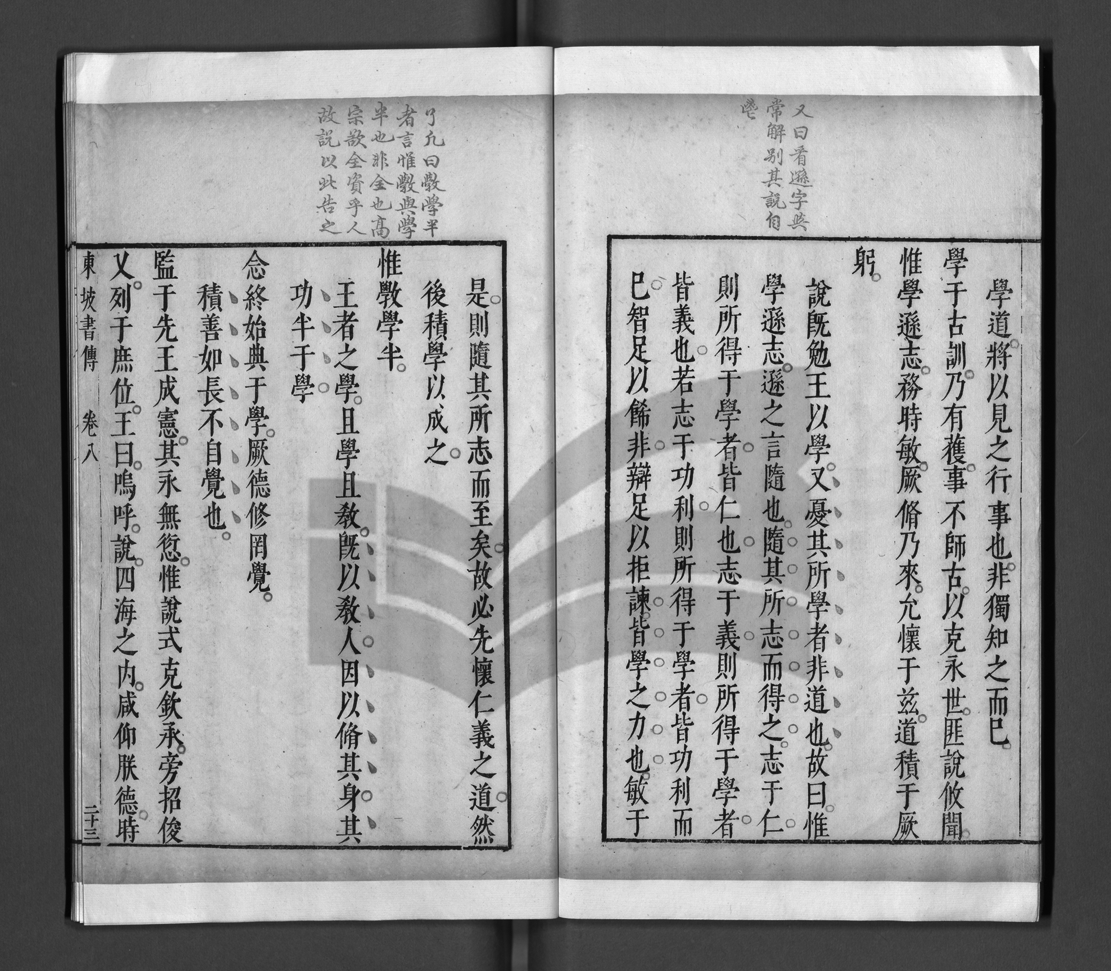 又曰看遜字與
常解別其說自
學道將以見之行事也非獨知之而已
學于古訓乃有獲事不師古以克永世匪說攸聞
惟學遜志務時敏厥脩乃來允懷于茲道積于厥
躬
說旣勉王以學又憂其所學者非道也故曰惟
學遜志遜之言隨也隨其所志而得之志于仁
則所得于學者皆仁也志于義則所得于學者
皆義也若志于功利則所得于學者皆功利而
已智足以餙非辯足以拒諫皆學之力也敏于
了凡曰斆學半
者言惟斆與學
半也非全也高
宗欲全資乎人
故說以此告之
是則隨其所志而至矣故必先懷仁義之道然
後積學以成之
惟斆學半
王者之學且學且敎旣以敎人因以脩其身其
功半于學
念終始典于學厥德修罔覺
積善如長不自覺也
監于先王成憲其永無愆惟說式克欽承旁招俊
乂列于庶位王曰嗚呼說四海之内咸仰朕德時
東坡書傳 卷八 二十三